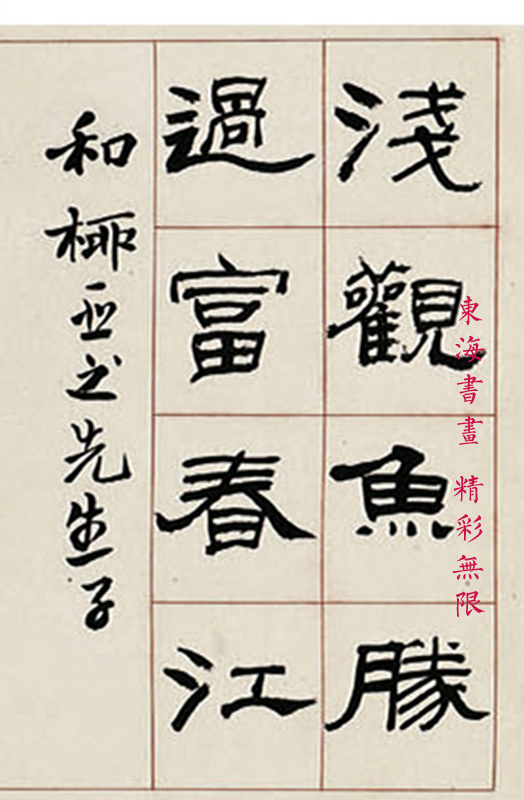 淺觀魚勝
過富春江
和柳亞先生子
東海書畫 精彩無限